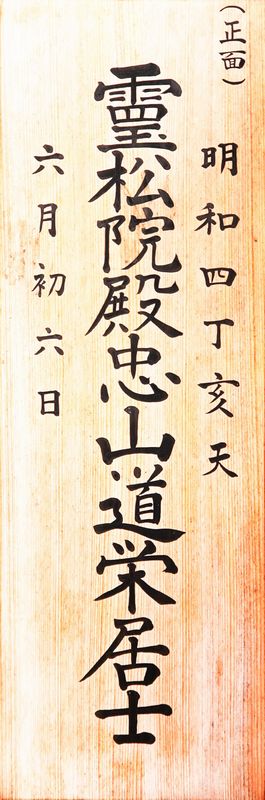 (正面)
明和四丁亥天
靈松院殿忠山道栄居士
六月初六日